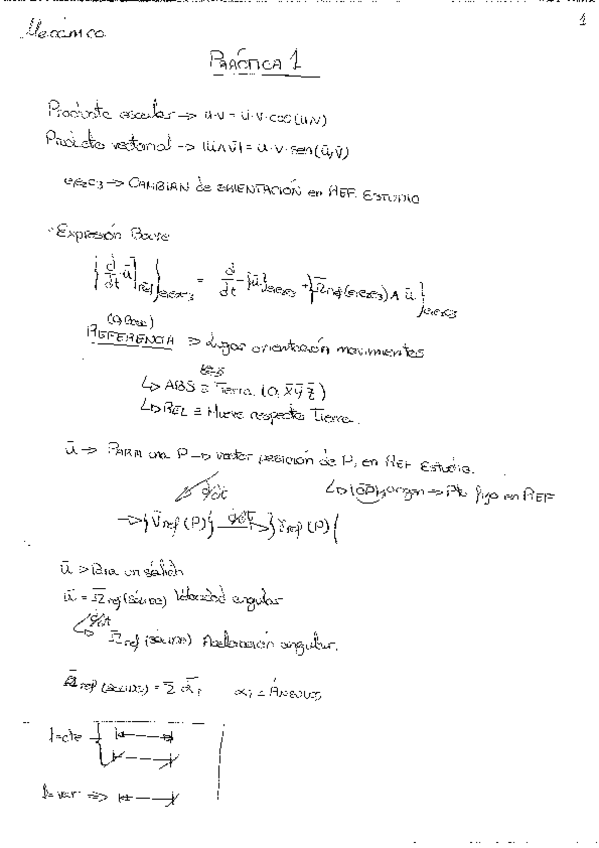 1
Mecánica
PRÁCTICA 1
Producto escalar → ū·v̄ = u·v·cos(ū,v̄)
Producto vectorial → |ū∧v̄| = u·v·sen(ū,v̄)
e1e2e3 → CAMBIAN de ORIENTACIÓN en REF. ESTUDIO
Expresión Boure
{d/dt ū]ref}e1e2e3 = d/dt {ū}e1e2e3 + {Ω̄ref(e1e2e3) ∧ ū}e1e2e3
(O Base)
REFERENCIA ⇒ Lugar orientación movimientos
↳ ABS ≡ Tierra. (O, x̄ȳz̄)
↳ REL ≡ Mueve respecto Tierra.
ū → PARA una P → vector posición de P, en REF Estudio.
↳ |OP|, origen → Pto fijo en REF
d/dt
→ {v̄ref(P)} d/dt → {γ̄ref(P)}
ū > Para un sólido
ū = Ω̄ref(SÓLIDO) Velocidad angular
d/dt
↳ Ω̄ref(SÓLIDO) Aceleración angular.
Ω̄ref(SÓLIDO) = Σ ᾱi αi = ÁNGULOS
l=cte
l=var ⇒